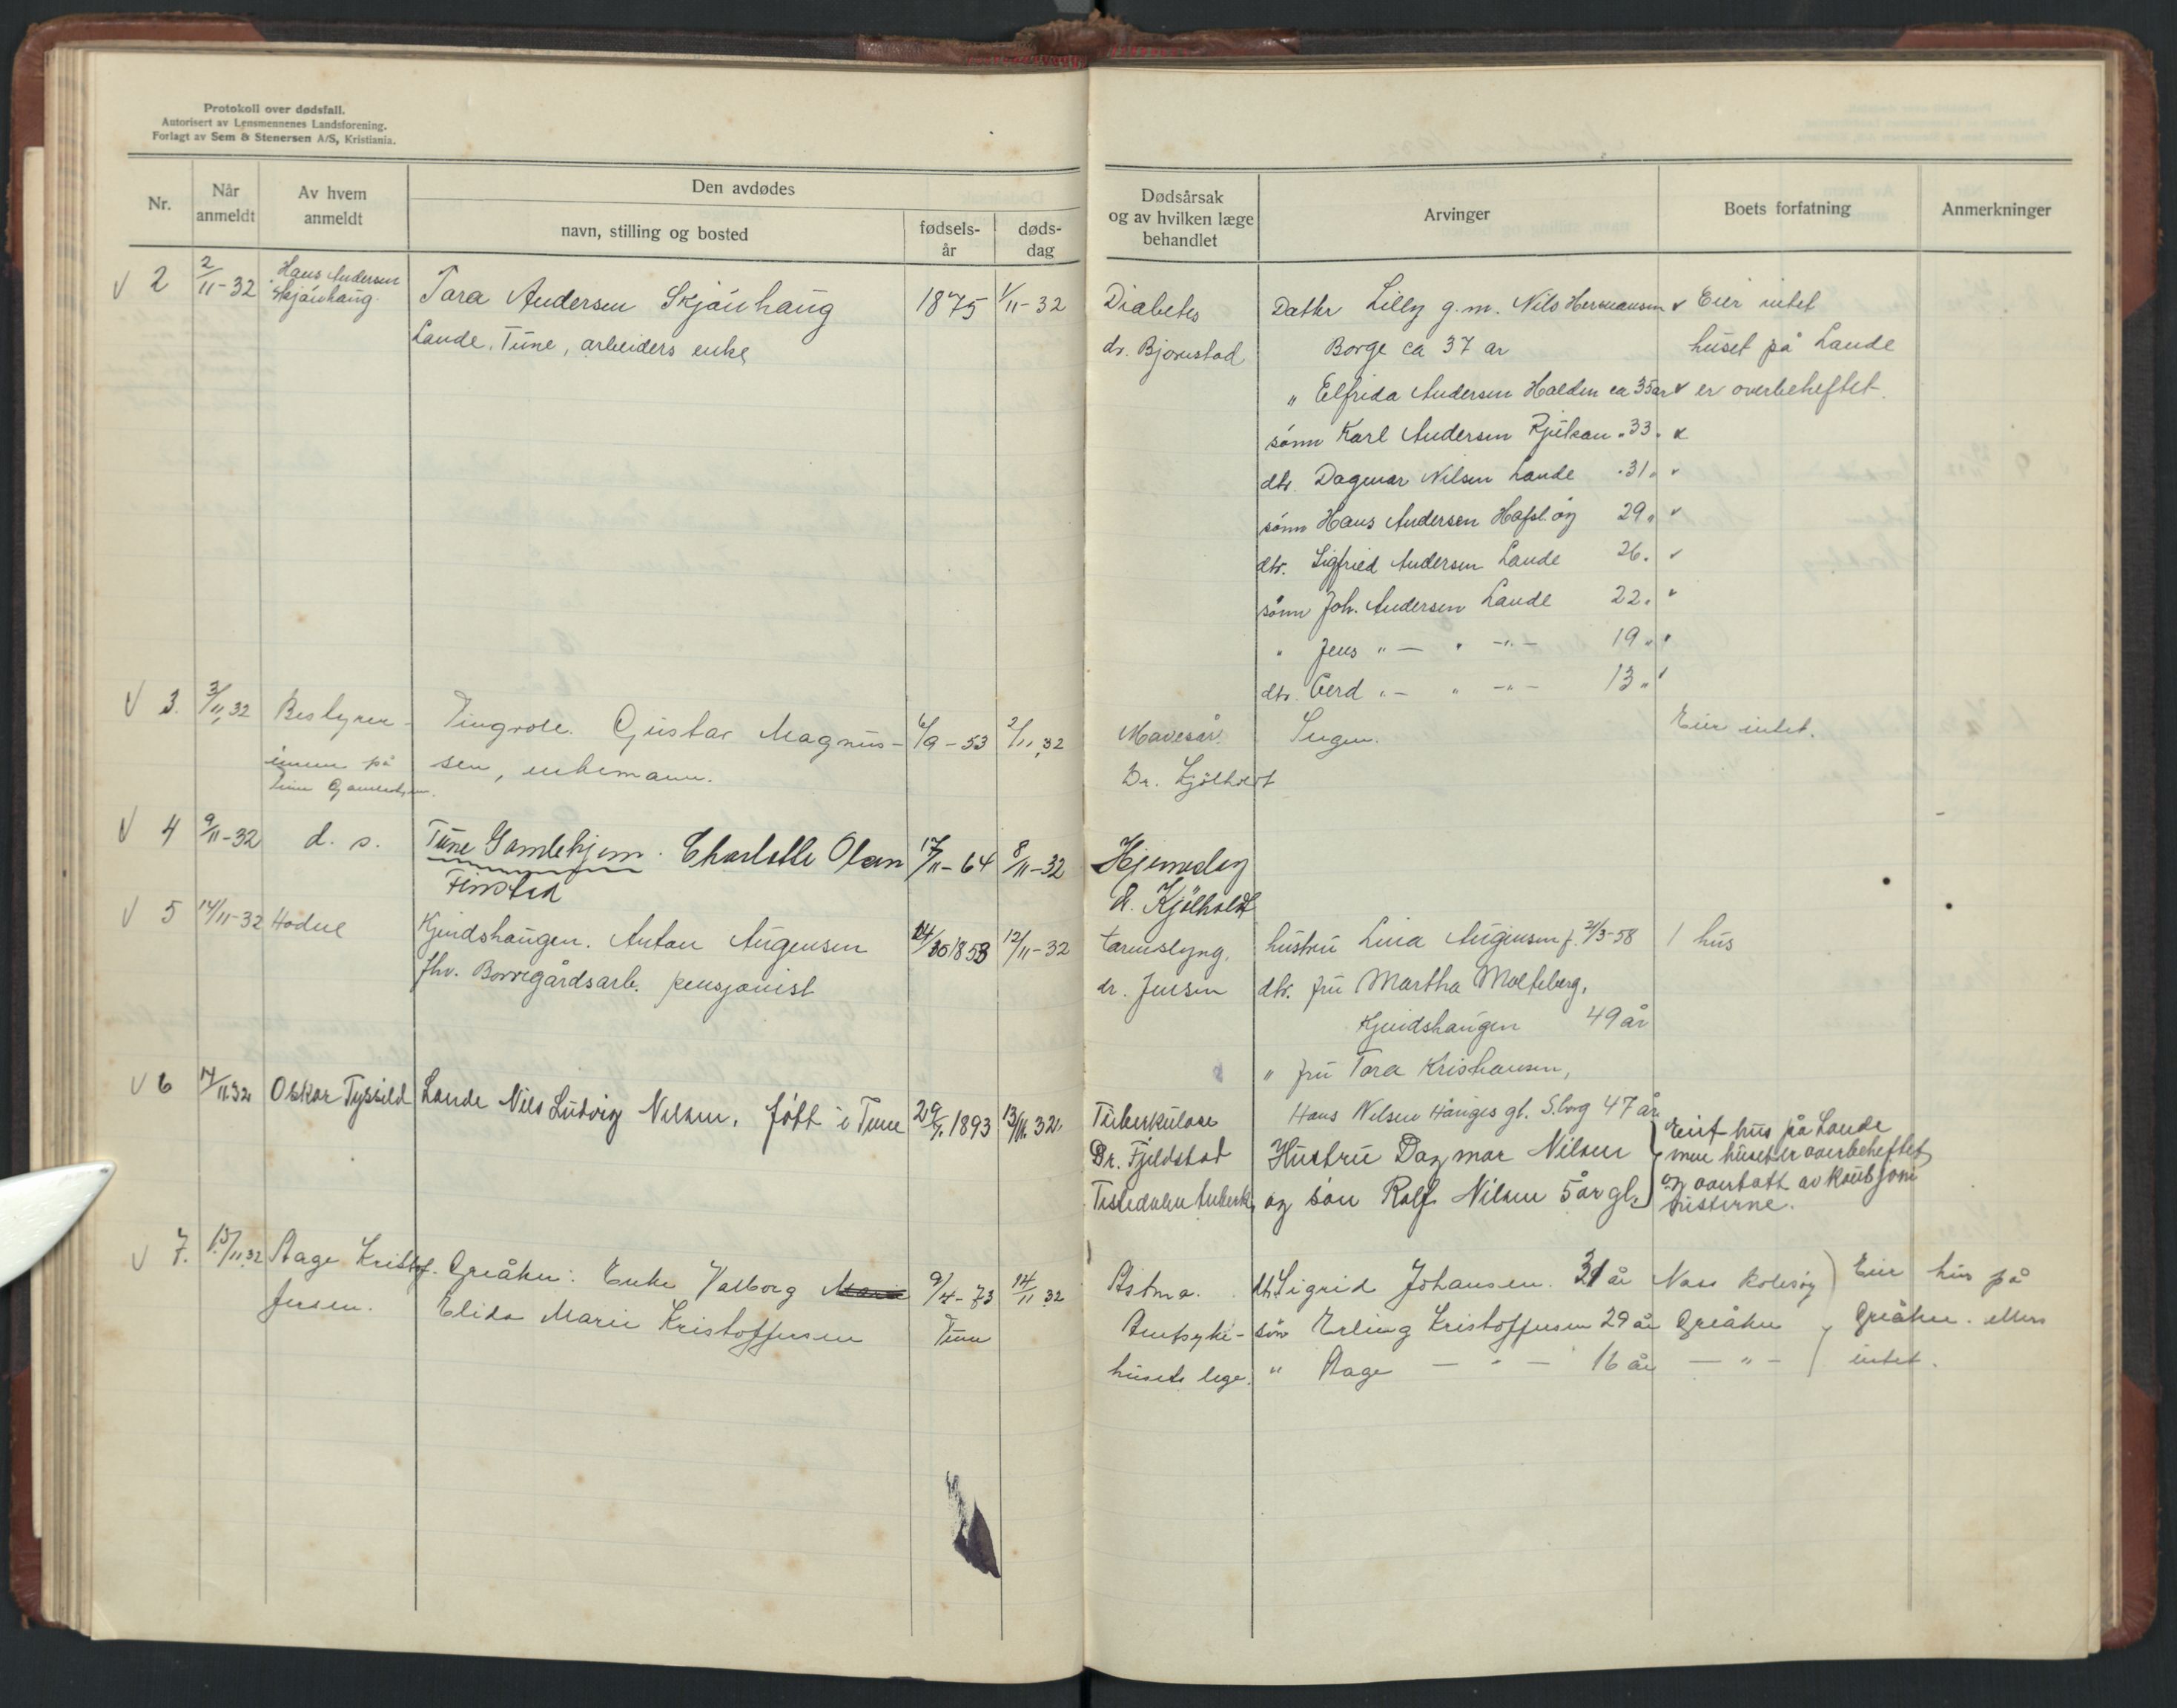 Protokoll over dødsfall.
Autorisert av Lensmennenes Landsforening.
Forlagt av Sem & Stenersen A/S, Kristiania.
Nr.
Når anmeldt
Av hvem anmeldt
Den avdødes
navn, stilling og bosted
fødsels-år
døds-dag
Dødsårsak og av hvilken læge behandlet
Arvinger
Boets forfatning
Anmerkninger
2 2/11-32 Hans Andersen Tora Andersen Skjønhaug 1875 1/11-32 Diabetes Datter Lilly g.m. Nils Hermansen Eier intet
Skjønhaug. Lande, Tune, arbeiders enke dr. Bjørnstad Borge ca 37 år huset på Lande
" Elfrida Andersen Halden ca 35 år er overbeheftet.
sønn Karl Andersen Rjukan " 33 "
dtr. Dagmar Nilsen Lande " 31 "
sønn Hans Andersen Hafsl. øy 29 "
dtr. Sigfried Andersen Lande 26 "
sønn Joh. Andersen Lande 22 "
" Jens " — " — " — 19 "
dtr. Gerd " — " — " — 13 "
3. 3/11 32 Bestyrer- Tingvoll. Gustav Magnus- 6/9-53 2/11 32 Mavesår. Ingen. Eier intet.
innen på sen, enkemann. Dr. Kjølholdt
Tune Gamlehjem.
4 9/11-32 d. s. Tune Gamlehjem. Charlotte Olsen 17/11-64 8/11-32 Hjerneslag
Finstad d. Kjølholdt
5 14/11-32 Hodne Kjindshaugen. Anton Augensen 1858 12/11-32 tarmslyng. hustru Lina Augensen f. 21/3-58 1 hus
fhv. Borregårdsarb. pensjonist dr. Jensen dtr. fru Martha Molteberg,
Kjindshaugen 49 år
" fru Tora Kristiansen,
Hans Nilsen Hauges gt. S.borg 47 år
6 14/11.32 Oskar Tyssild Lande Nils Ludvig Nilsen. født i Tune 29/7. 1893 13/11. 32 Tuberkulose Hustru Dagmar Nilsen Eiet hus på Lande
Dr. Fjeldstad og søn Rolf Nilsen 5 år gl. men huset er overbeheftet
Tistedalen tuberk. og overtatt av kausjoni
sterne.
7. 15/11 32 Aage Kristof- Greåker: Enke Valborg 9/4-73 14/11 32 Astma. dt. Sigrid Johansen. 31 år Eier hus på
fersen. Elida Marie Kristoffersen Tune Amtsyke- søn Erling Kristoffersen 29 år Greåker Greåker. ellers
husets lege. " Aage — " — 16 år — " — intet.